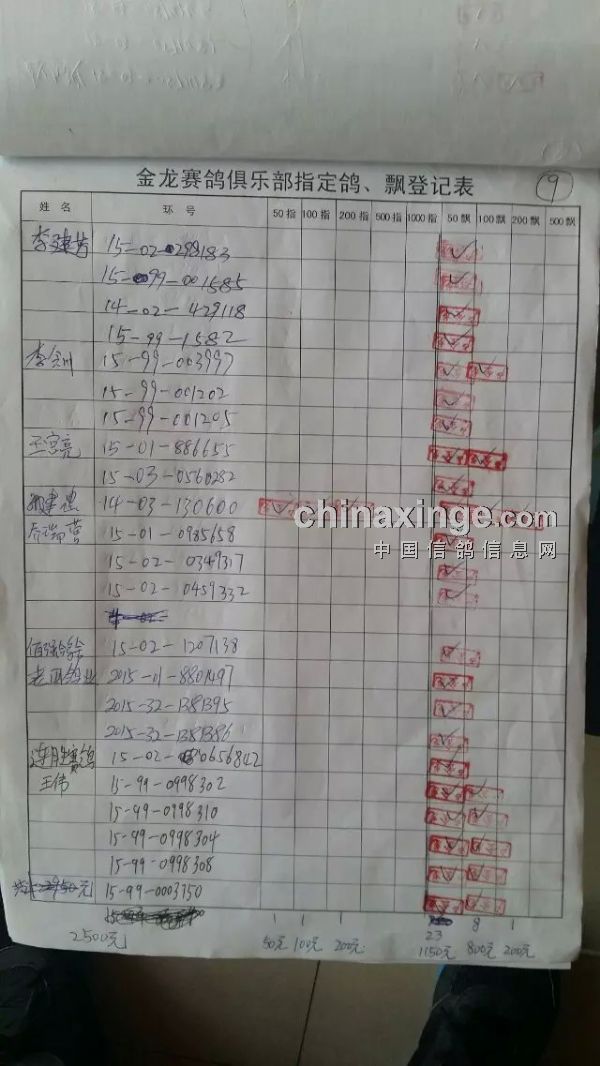 金龙赛鸽俱乐部指定鸽、飘登记表 9
姓名 环号 50指 100指 200指 500指 1000指 50飘 100飘 200飘 500飘
李建芳 15-02-298183
15-99-001585
14-02-429118
15-99-1582
15-99-003997
15-99-001202
15-99-001205
15-01-886655
15-03-0560282
14-03-130600
乔瑞营 15-01-0985658
15-02-0349317
15-02-0459332
15-02-1207138
2015-11-8801497
2015-32-1381395
2015-32-1381386
15-02-0656842
王伟 15-99-0998302
15-99-0998310
15-99-0998304
15-99-0998308
15-99-0003750
1 1 1 23 8 1
2500元 50元 100元 200元 1150元 800元 200元
chinaxinge.com
中国信鸽信息网